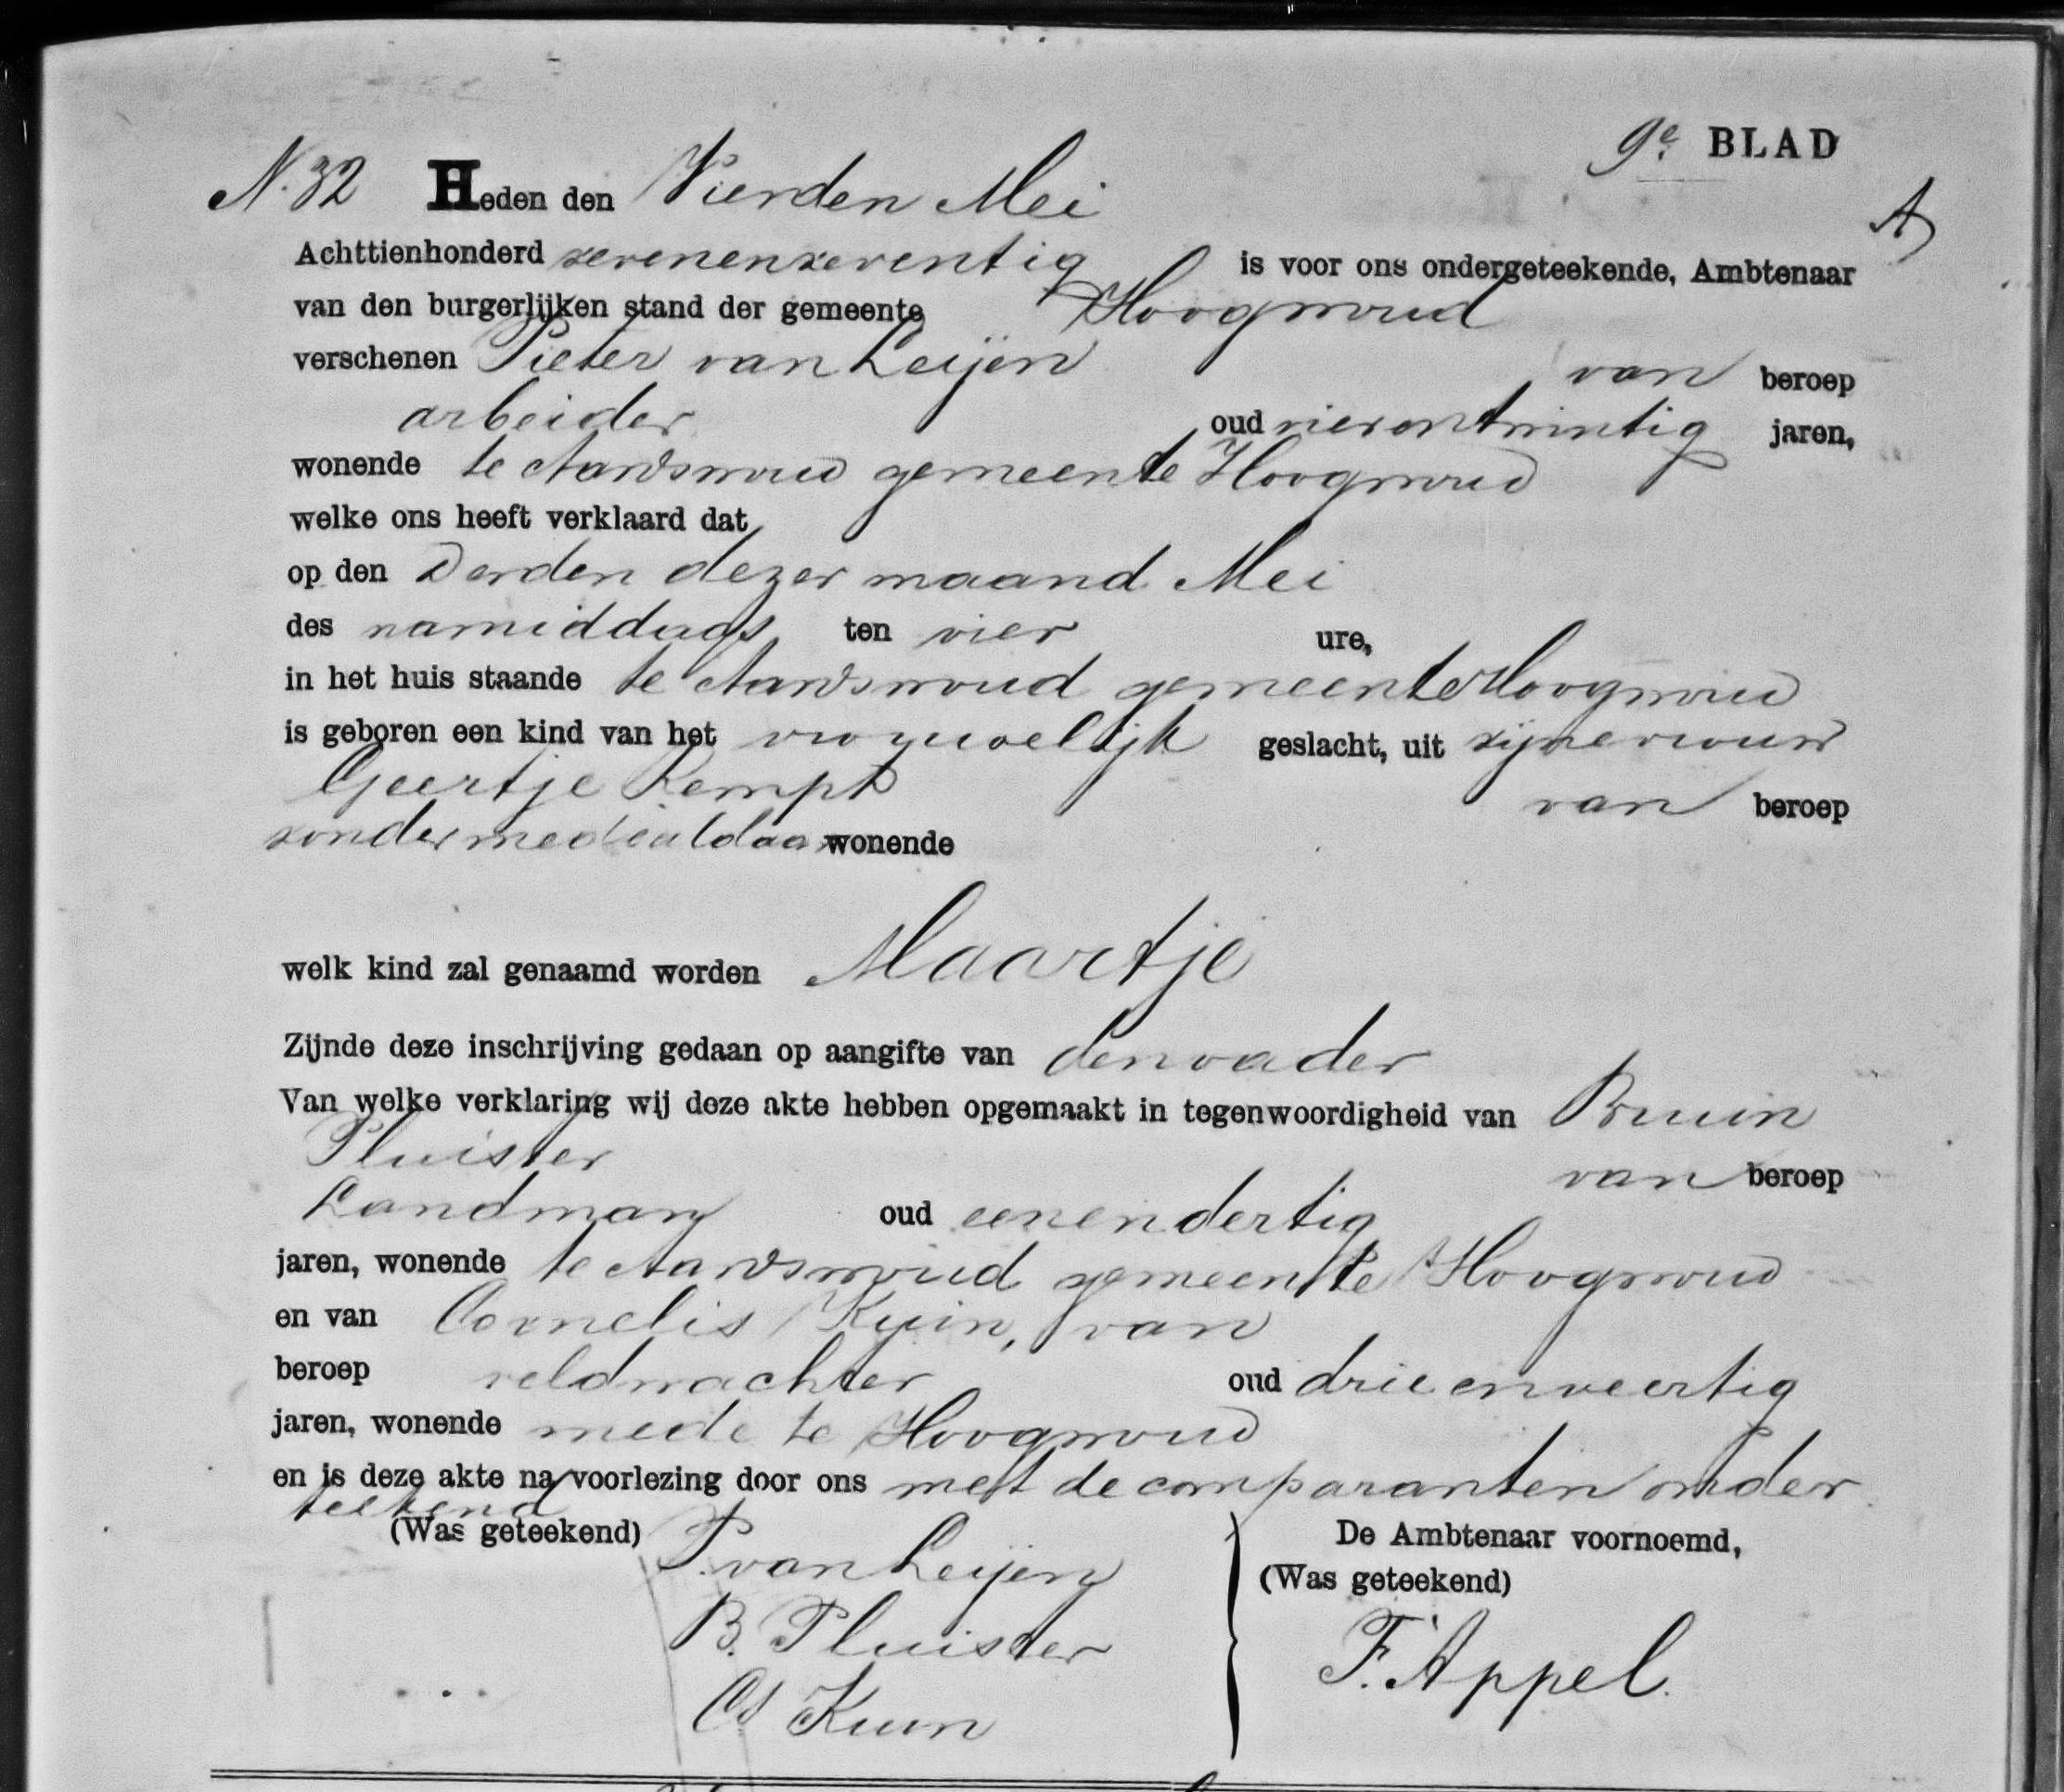 9e. BLAD
N. 32 Heden den Vierden Mei
A
Achttienhonderd zevenenzeventig is voor ons ondergeteekende, Ambtenaar
van den burgerlijken stand der gemeente Hoogwoud
verschenen Pieter van Leijen van beroep
arbeider oud vierentwintig jaren,
wonende te Aardswoud gemeente Hoogwoud
welke ons heeft verklaard dat
op den Derden dezer maand Mei
des namiddags ten vier ure,
in het huis staande te Aardswoud gemeente Hoogwoud
is geboren een kind van het vrouwelijk geslacht, uit zijne vrouw
Geertje Kempt van beroep
zonder mede aldaar wonende
welk kind zal genaamd worden Maartje
Zijnde deze inschrijving gedaan op aangifte van den vader
Van welke verklaring wij deze akte hebben opgemaakt in tegenwoordigheid van Bruin
Pluister van beroep
Landman oud eenendertig
jaren, wonende te Aardswoud gemeente Hoogwoud
en van Cornelis Kuin, van
beroep veldwachter oud drieenveertig
jaren, wonende mede te Hoogwoud
en is deze akte na voorlezing door ons met de comparanten onder
teekend
(Was geteekend) P. van Leijen
De Ambtenaar voornoemd,
(Was geteekend)
B. Pluister
Cs Kuin
F. Appel.